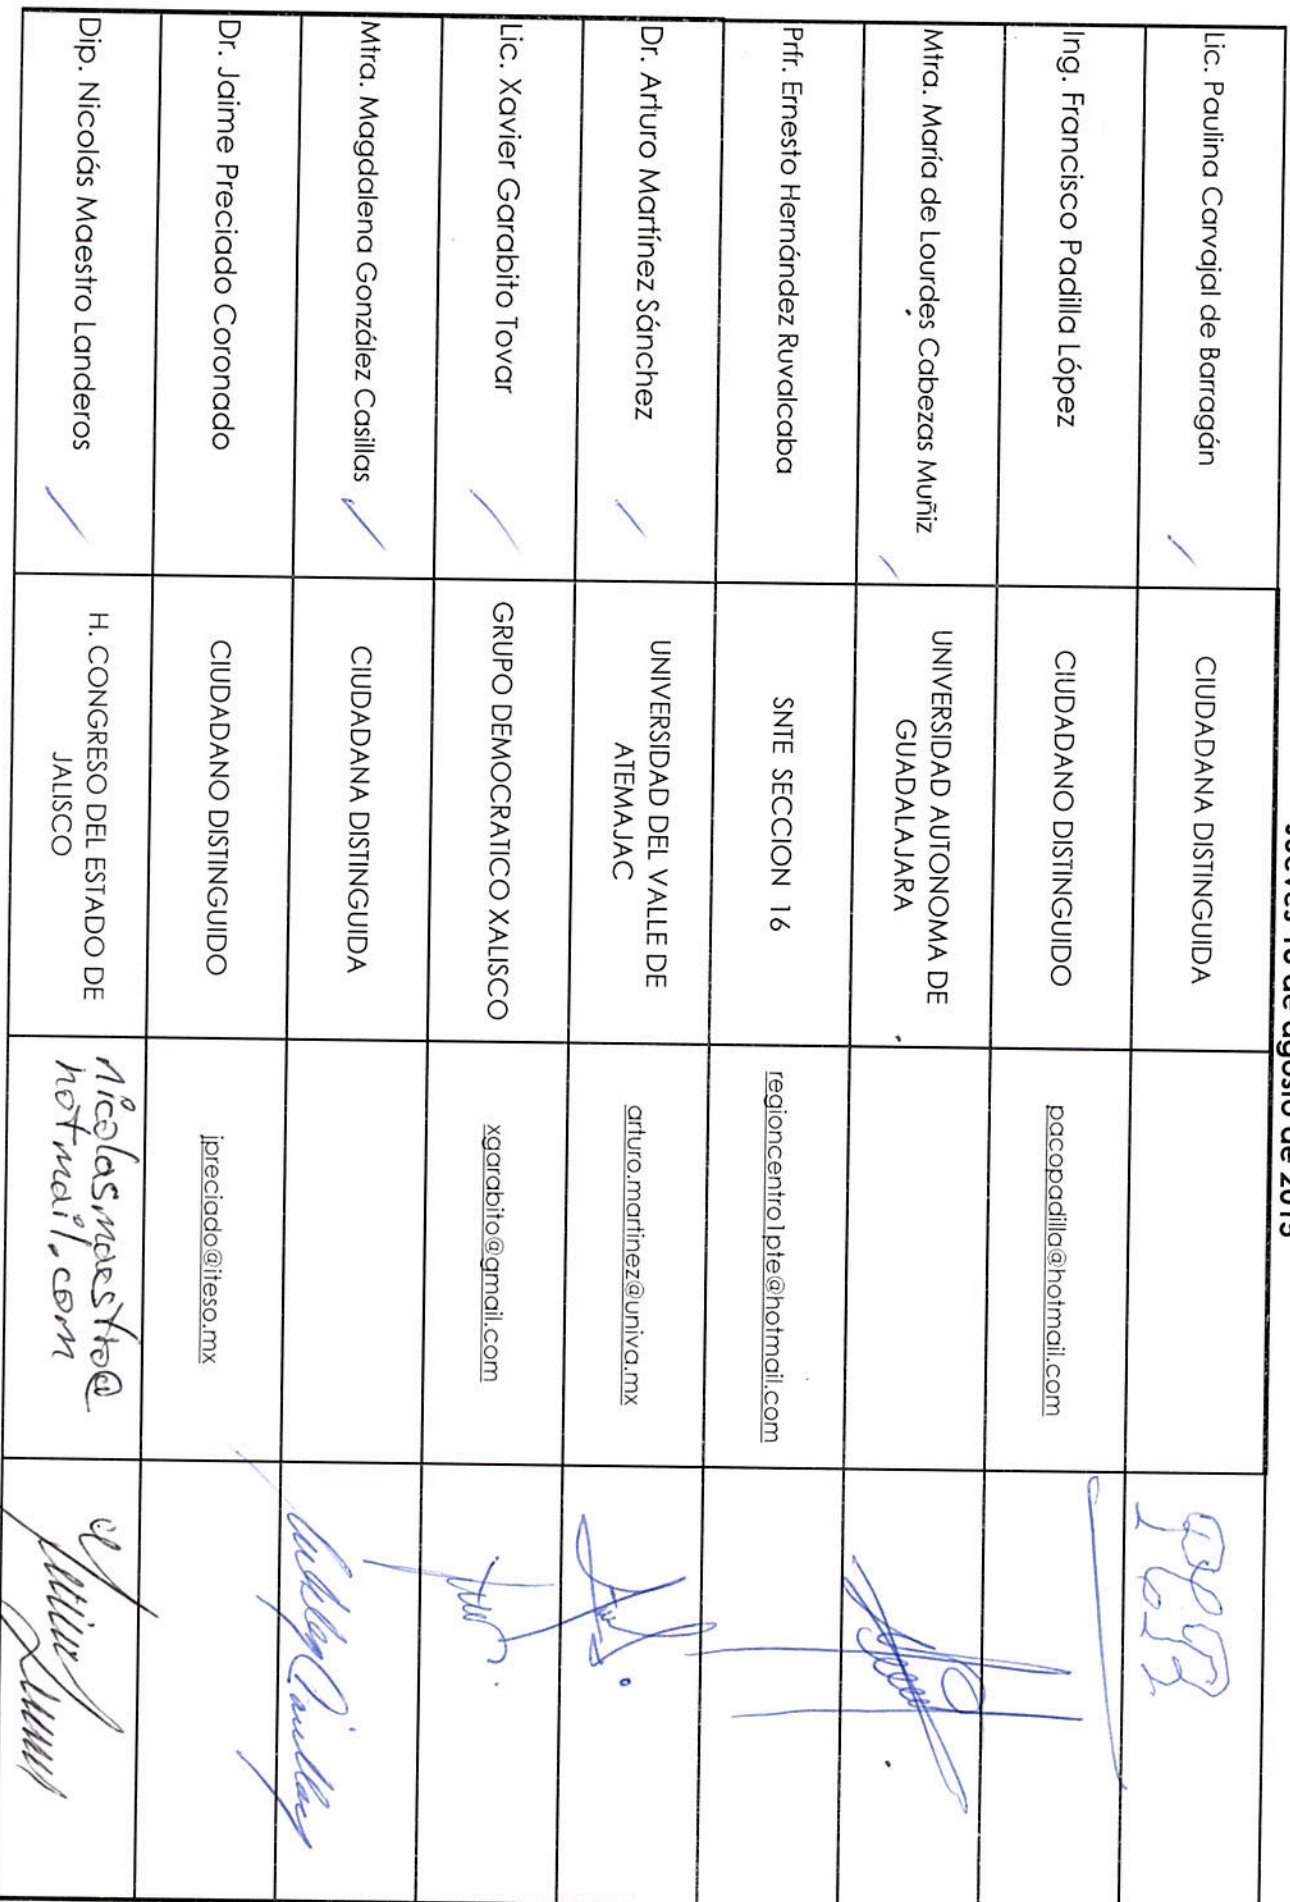 Lic. Paulina Carvajal de Barragán
CIUDADANA DISTINGUIDA
Ing. Francisco Padilla López
CIUDADANO DISTINGUIDO
pacopadilla@hotmail.com
Mtra. María de Lourdes Cabezas Muñiz
UNIVERSIDAD AUTONOMA DE
GUADALAJARA
Prfr. Ernesto Hernández Ruvalcaba
SNTE SECCION 16
regioncentro1pte@hotmail.com
Dr. Arturo Martínez Sánchez
UNIVERSIDAD DEL VALLE DE
ATEMAJAC
arturo.martinez@univa.mx
Lic. Xavier Garabito Tovar
GRUPO DEMOCRATICO XALISCO
xgarabito@gmail.com
Mtra. Magdalena González Casillas
CIUDADANA DISTINGUIDA
Dr. Jaime Preciado Coronado
CIUDADANO DISTINGUIDO
jpreciado@iteso.mx
Dip. Nicolás Maestro Landeros
H. CONGRESO DEL ESTADO DE
JALISCO
nicolasmaestro@
hotmail.com